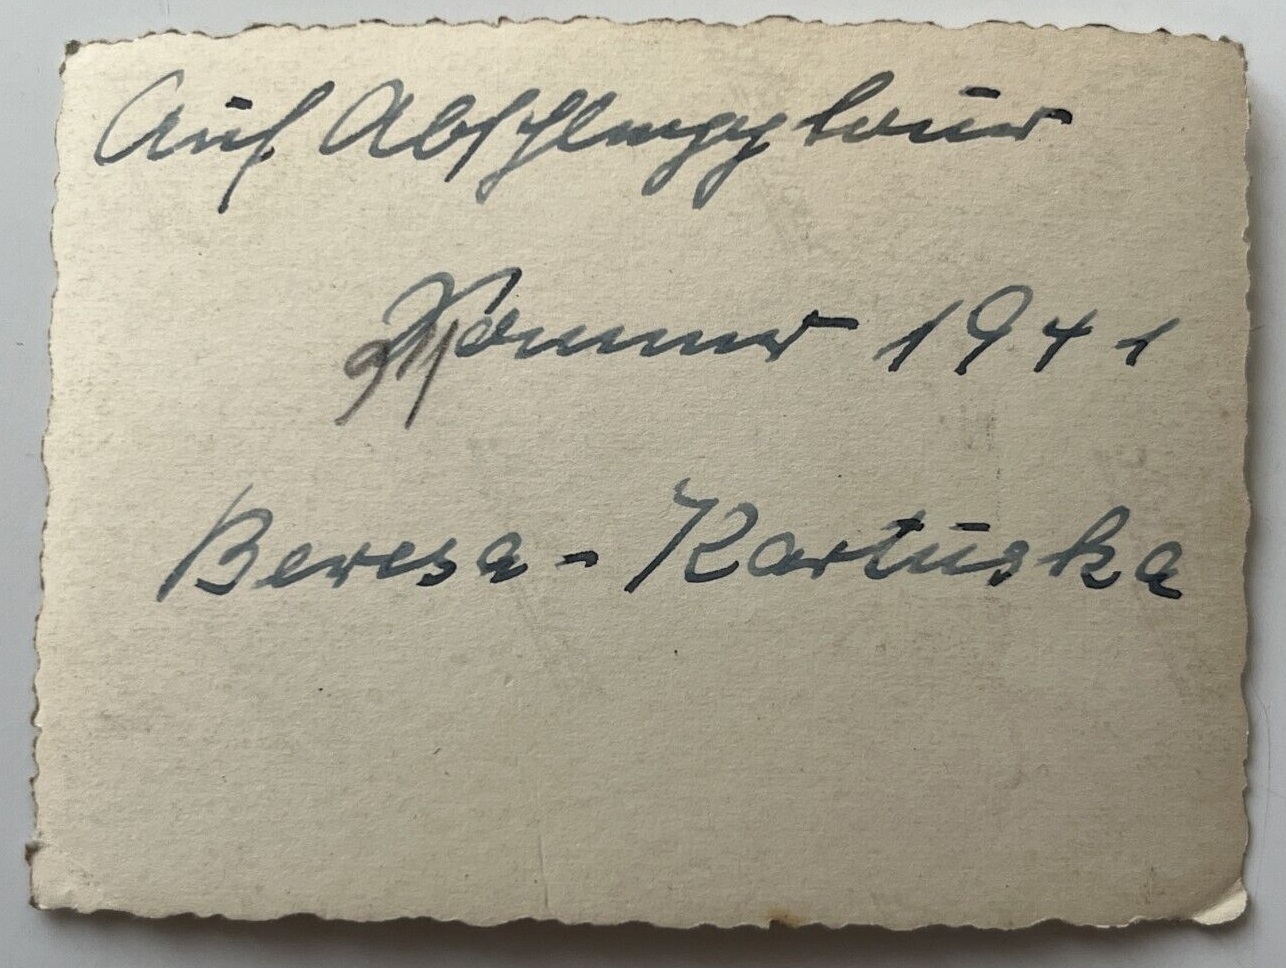 Auf Abschlepptour
Sommer 1941
Beresa-Kartuska